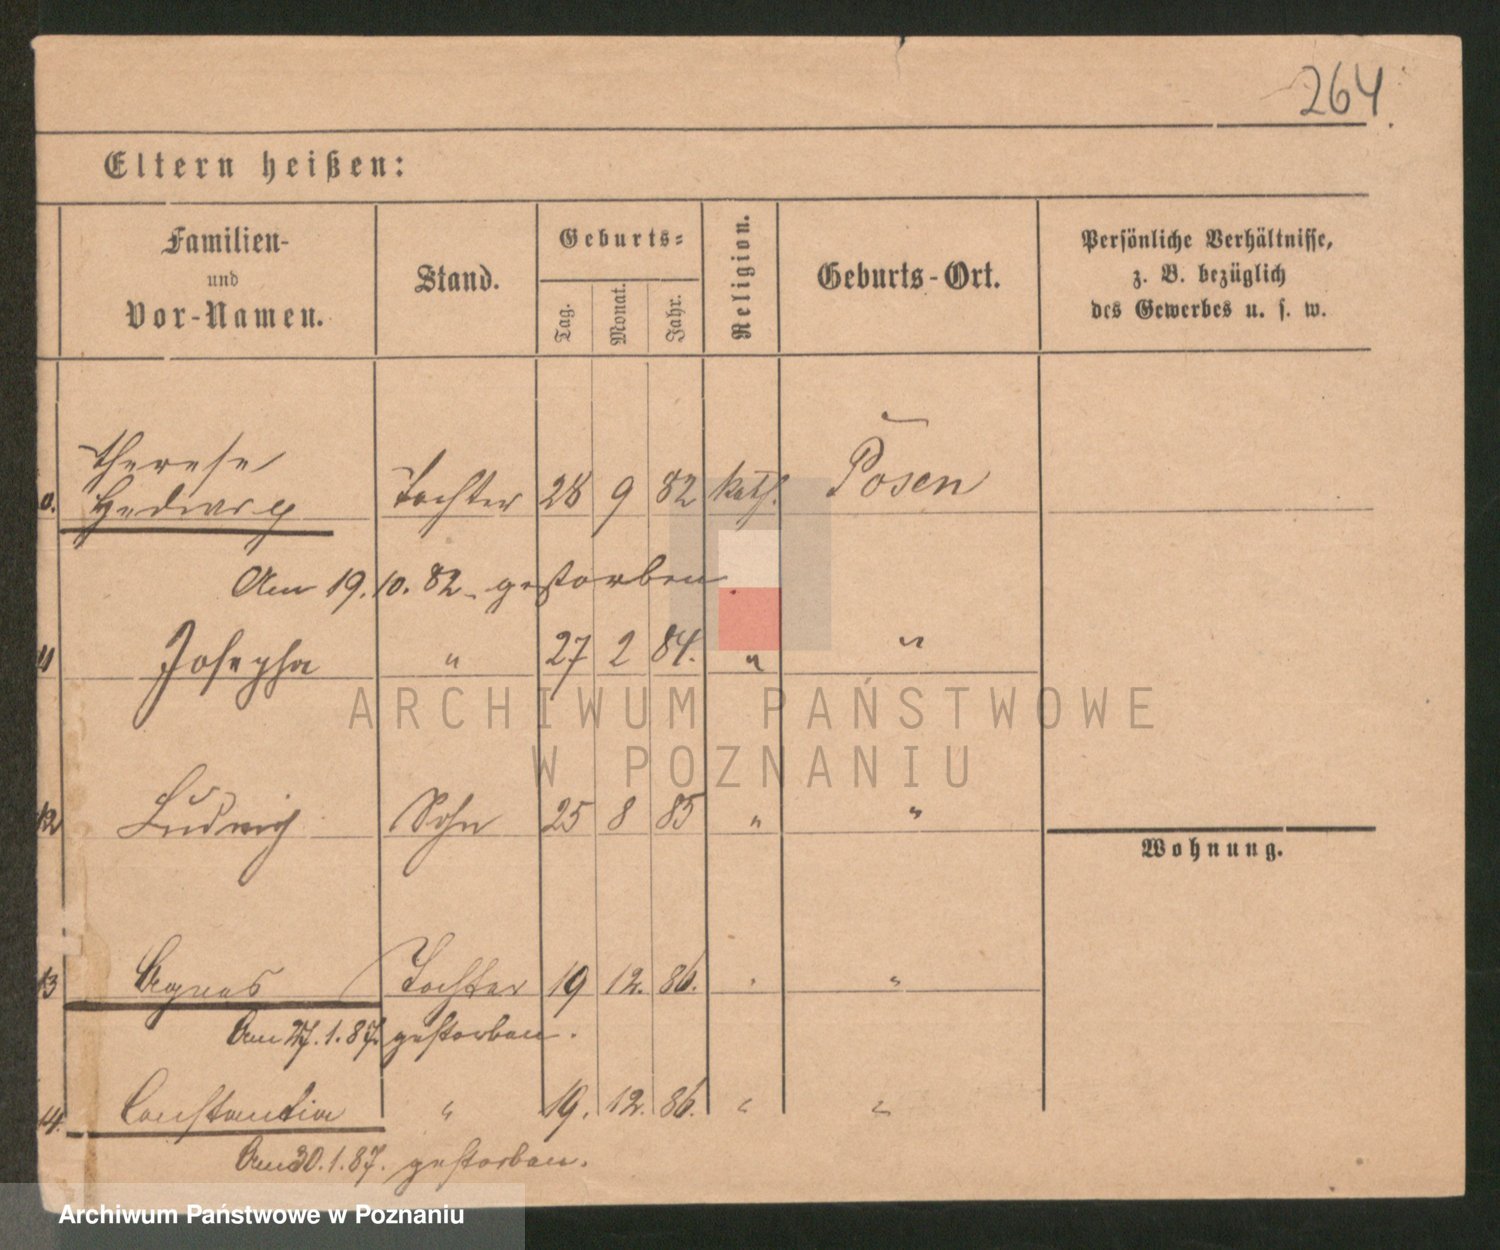 264.
Eltern heißen:
Familien-
und
Vor-Namen.
Stand.
Geburts-
Tag.
Monat.
Jahr.
Religion.
Geburts-Ort.
Persönliche Verhältnisse,
z. B. bezüglich
des Gewerbes u. s. w.
Therese
Hedwig Tochter 28 9 82 kath. Posen
Am 19.10.82 gestorben.
11 Josepha " 27 2 84. " "
12 Ludwig Sohn 25 8 85 " "
Wohnung.
13 Agnes Tochter 19 12. 86. " "
Am 27.1.87. gestorben.
14. Constantia " 19. 12. 86. " "
Am 30.1.87. gestorben.
ARCHIWUM PAŃSTWOWE
W POZNANIU
Archiwum Państwowe w Poznaniu